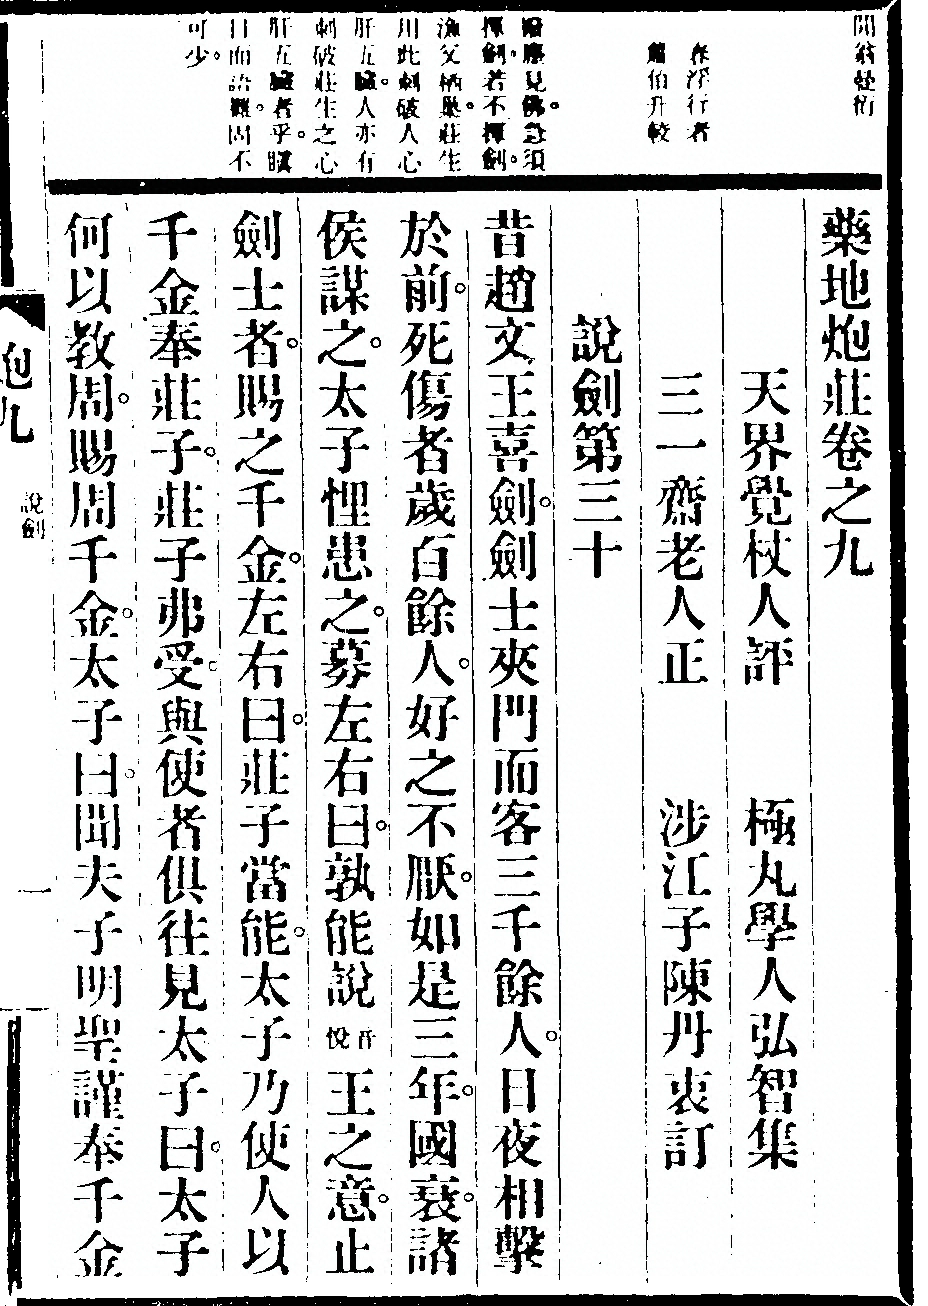 閒翁曼衍
春浮行者
蕭伯升較
見佛。急須
揮劍。若不揮劍。
漁父栖巢。莊生
用此刺破人心
肝五臟。人亦有
刺破莊生之心
肝五臟者乎。瞋
目而語難。固不
可少。
藥地炮莊卷之九
天界覺杖人評　極丸學人弘智集
三一齋老人正　涉江子陳丹衷訂
說劍第三十
昔趙文王喜劍。劍士夾門而客三千餘人。日夜相擊
於前。死傷者歲百餘人。好之不厭。如是三年。國衰。諸
侯謀之。太子悝患之。募左右曰。孰能說音悅王之意。止
劍士者。賜之千金。左右曰。莊子當能。太子乃使人以
千金奉莊子。莊子弗受。與使者俱往見太子曰。太子
何以教周。賜周千金。太子曰。聞夫子明聖謹奉千金
炮九
說劍
一